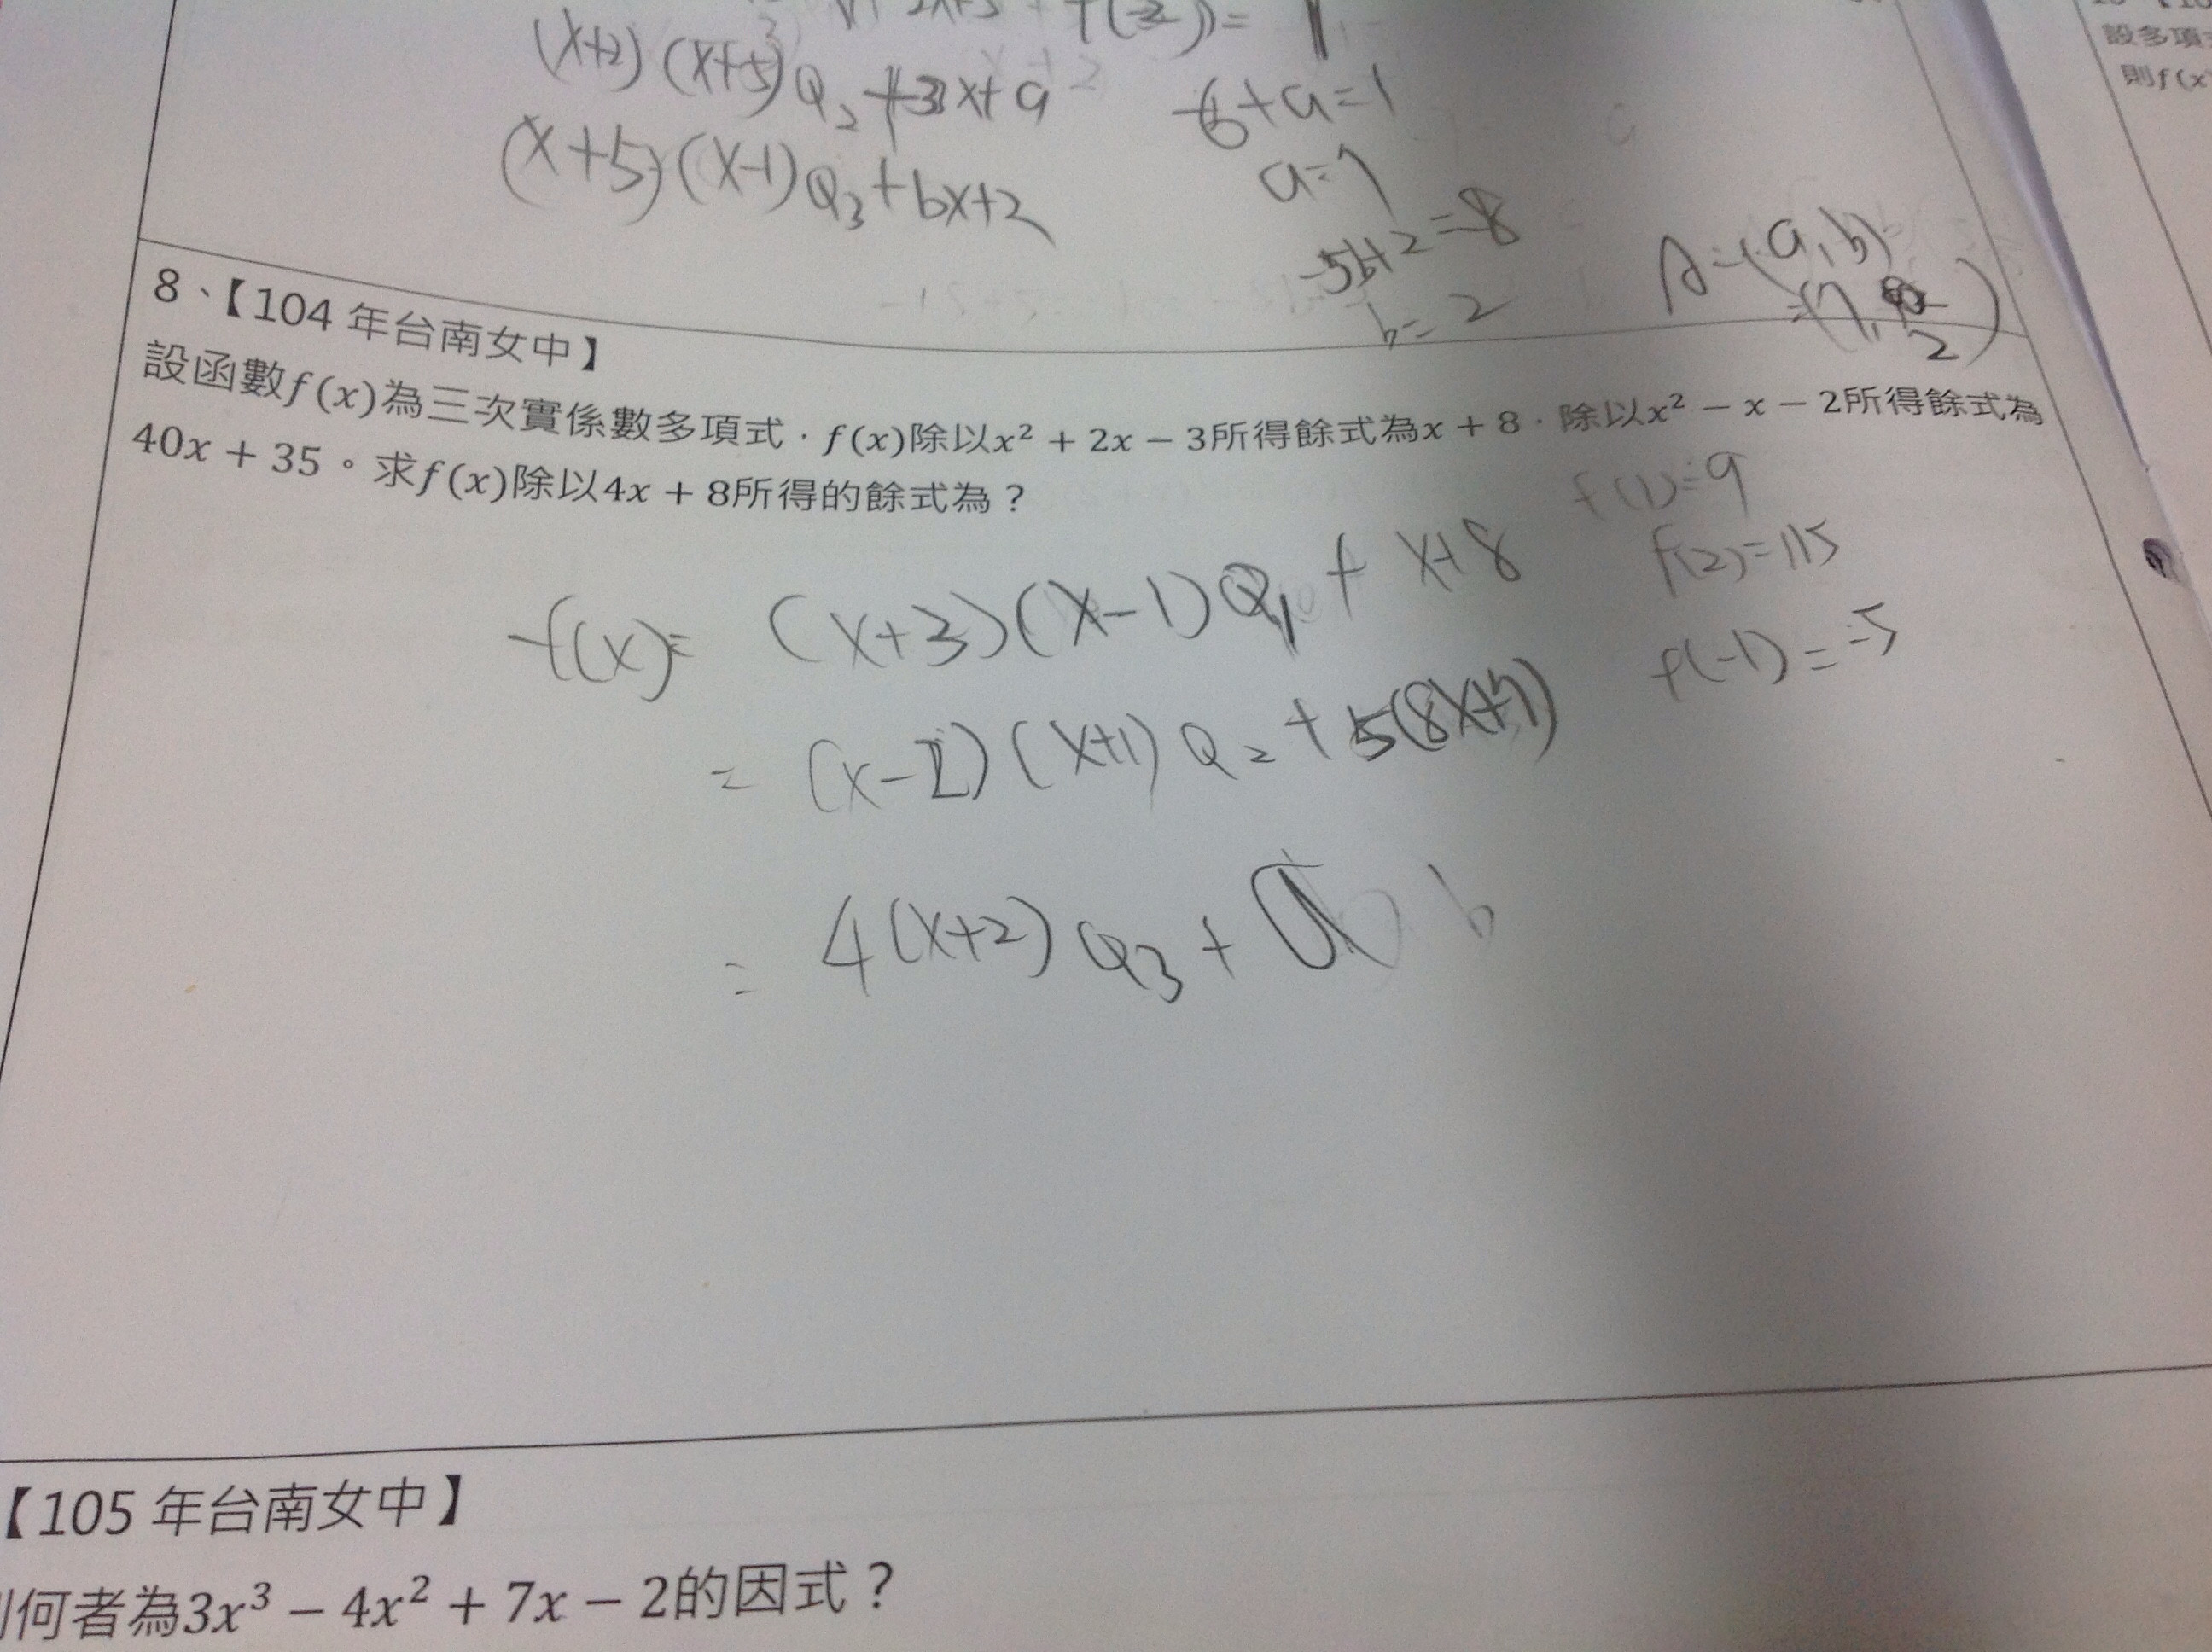 f(-2)=1
(x+2)(x+5)Q₂+3x+a
-6+a=1
(x+5)(x-1)Q₃+bx+2
a=7
-5b+2=-8
b=2
A=(a,b)
=(7,2)
8、【104 年台南女中】
設函數f(x)為三次實係數多項式，f(x)除以x² + 2x − 3所得餘式為x + 8，除以x² − x − 2所得餘式為
40x + 35。求f(x)除以4x + 8所得的餘式為？
f(1)=9
f(2)=115
f(-1)=-5
f(x)= (x+3)(x-1)Q₁+x+8
= (x-2)(x+1)Q₂+5(8x+7)
= 4(x+2)Q₃+
b
【105 年台南女中】
何者為3x³ − 4x² + 7x − 2的因式？
設多項
則f(x